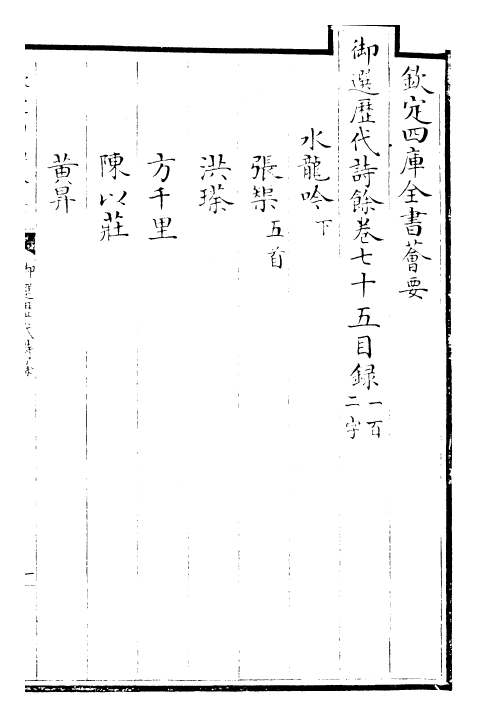 欽定四庫全書薈要
御選歷代詩餘卷七十五目録一百二字
水龍吟下
張榘五首
洪瑹
方千里
陳以莊
黃昇